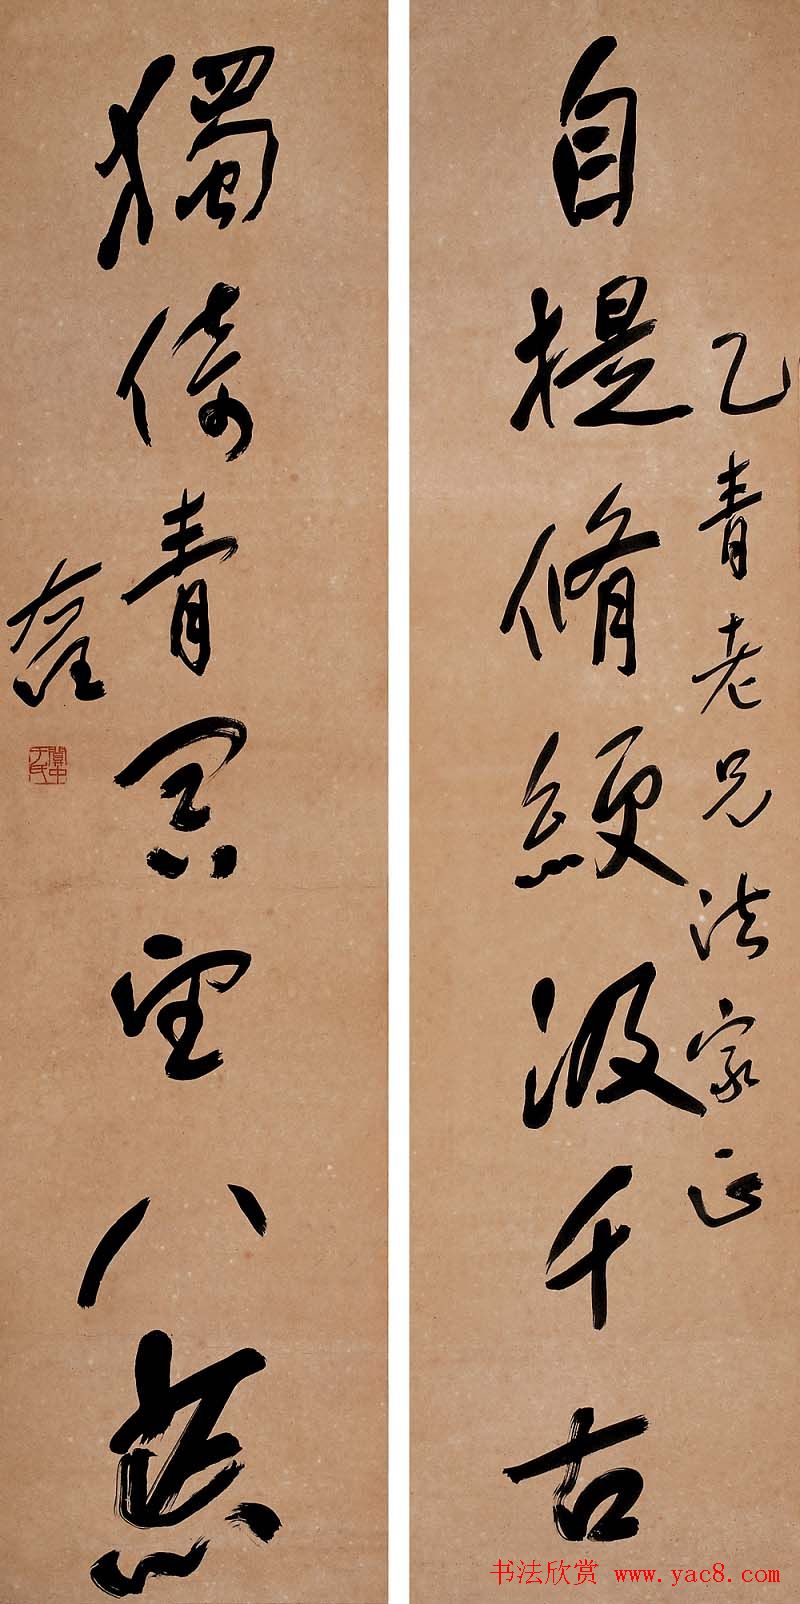 乙青老兄法家正
自提脩綆汲千古
獨倚青冥望八荒
右任
關中于氏
书法欣赏 www.yac8.com